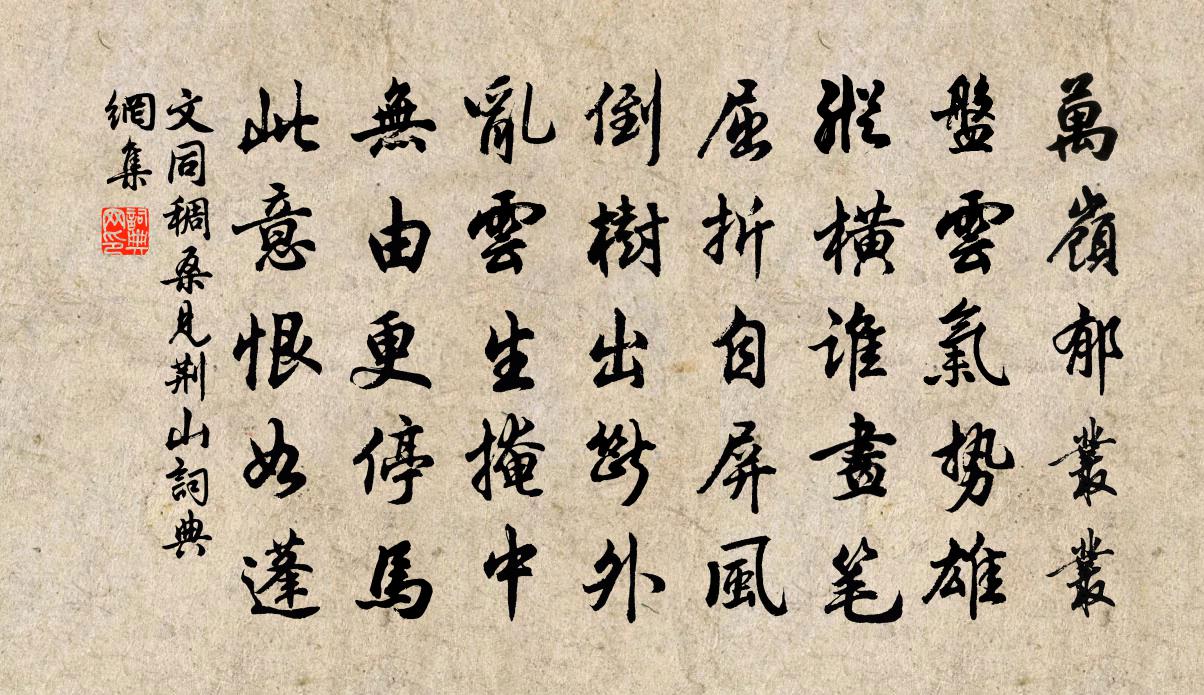 萬嶺郁叢叢
盤雲氣勢雄
縱橫誰畫笔
屈折自屏風
倒樹出斷外
亂雲生掩中
無由更停馬
此意恨如蓬
文同稠桑見荆山詞典
網集
詞典
网印